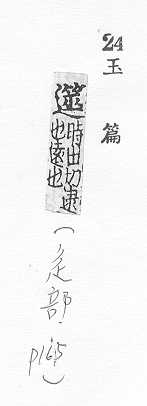 24 玉篇
遾 時曳切逮
也遠也
(辵部. P165)